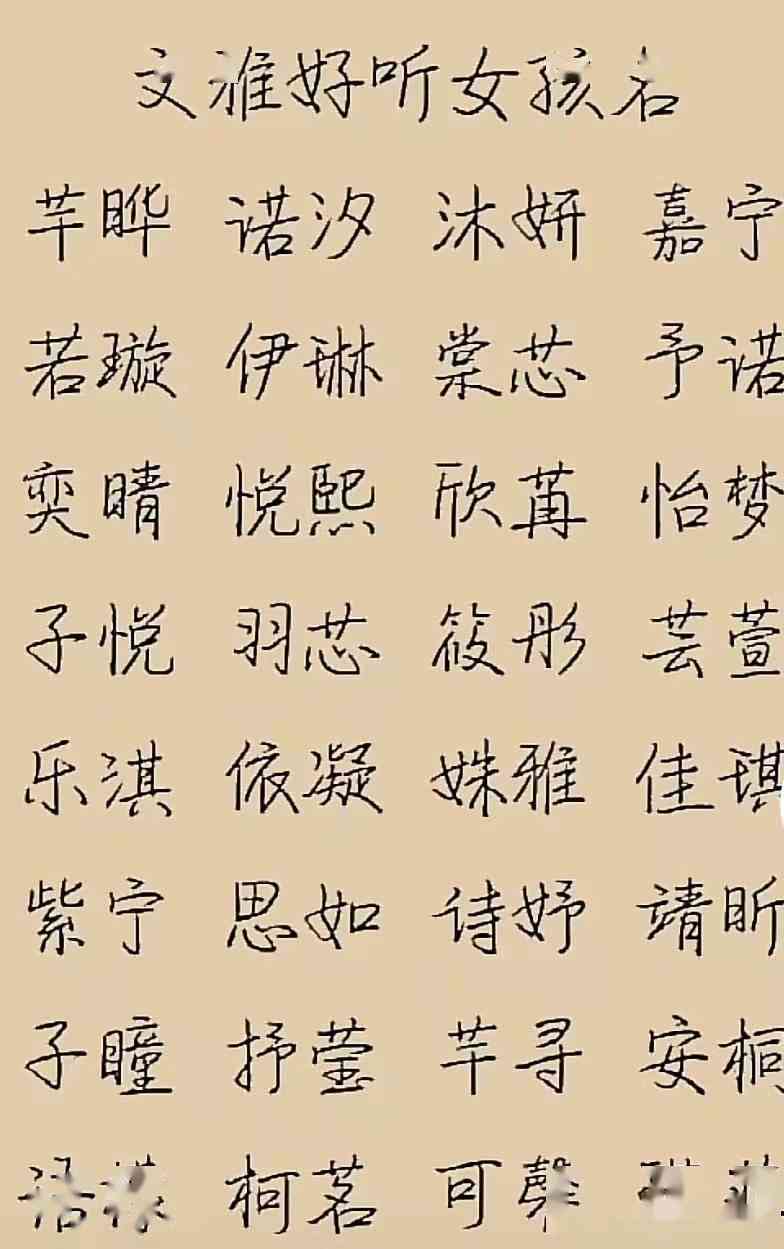 文雅好听女孩名
芊晔 诺汐 沐妍 嘉宁
若璇 伊琳 棠芯 予诺
奕晴 悦熙 欣苒 怡梦
子悦 羽芯 筱彤 芸萱
乐淇 依凝 姝雅 佳琪
紫宁 思如 诗妤 靖昕
子瞳 抒莹 芊寻 安桐
语 柯茗 可馨